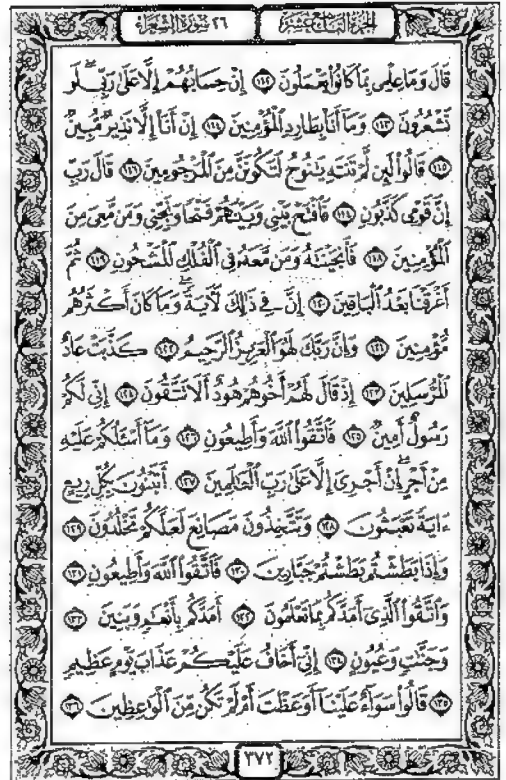 الجزء التاسع عشر
٢٦ سورة الشعراء
قَالَ وَمَا عِلْمِى بِمَا كَانُوا۟ يَعْمَلُونَ ١١٢ إِنْ حِسَابُهُمْ إِلَّا عَلَىٰ رَبِّى ۖ لَوْ
تَشْعُرُونَ ١١٣ وَمَآ أَنَا۠ بِطَارِدِ ٱلْمُؤْمِنِينَ ١١٤ إِنْ أَنَا۠ إِلَّا نَذِيرٌ مُّبِينٌ
١١٥ قَالُوا۟ لَئِن لَّمْ تَنتَهِ يَٰنُوحُ لَتَكُونَنَّ مِنَ ٱلْمَرْجُومِينَ ١١٦ قَالَ رَبِّ
إِنَّ قَوْمِى كَذَّبُونِ ١١٧ فَٱفْتَحْ بَيْنِى وَبَيْنَهُمْ فَتْحًا وَنَجِّنِى وَمَن مَّعِىَ مِنَ
ٱلْمُؤْمِنِينَ ١١٨ فَأَنجَيْنَٰهُ وَمَن مَّعَهُۥ فِى ٱلْفُلْكِ ٱلْمَشْحُونِ ١١٩ ثُمَّ
أَغْرَقْنَا بَعْدُ ٱلْبَاقِينَ ١٢٠ إِنَّ فِى ذَٰلِكَ لَءَايَةً ۖ وَمَا كَانَ أَكْثَرُهُم
مُّؤْمِنِينَ ١٢١ وَإِنَّ رَبَّكَ لَهُوَ ٱلْعَزِيزُ ٱلرَّحِيمُ ١٢٢ كَذَّبَتْ عَادٌ
ٱلْمُرْسَلِينَ ١٢٣ إِذْ قَالَ لَهُمْ أَخُوهُمْ هُودٌ أَلَا تَتَّقُونَ ١٢٤ إِنِّى لَكُمْ
رَسُولٌ أَمِينٌ ١٢٥ فَٱتَّقُوا۟ ٱللَّهَ وَأَطِيعُونِ ١٢٦ وَمَآ أَسْـَٔلُكُمْ عَلَيْهِ
مِنْ أَجْرٍ ۖ إِنْ أَجْرِىَ إِلَّا عَلَىٰ رَبِّ ٱلْعَٰلَمِينَ ١٢٧ أَتَبْنُونَ بِكُلِّ رِيعٍ
ءَايَةً تَعْبَثُونَ ١٢٨ وَتَتَّخِذُونَ مَصَانِعَ لَعَلَّكُمْ تَخْلُدُونَ ١٢٩
وَإِذَا بَطَشْتُم بَطَشْتُمْ جَبَّارِينَ ١٣٠ فَٱتَّقُوا۟ ٱللَّهَ وَأَطِيعُونِ ١٣١
وَٱتَّقُوا۟ ٱلَّذِىٓ أَمَدَّكُم بِمَا تَعْلَمُونَ ١٣٢ أَمَدَّكُم بِأَنْعَٰمٍ وَبَنِينَ ١٣٣
وَجَنَّٰتٍ وَعُيُونٍ ١٣٤ إِنِّىٓ أَخَافُ عَلَيْكُمْ عَذَابَ يَوْمٍ عَظِيمٍ
١٣٥ قَالُوا۟ سَوَآءٌ عَلَيْنَآ أَوَعَظْتَ أَمْ لَمْ تَكُن مِّنَ ٱلْوَٰعِظِينَ ١٣٦
٣٧٢